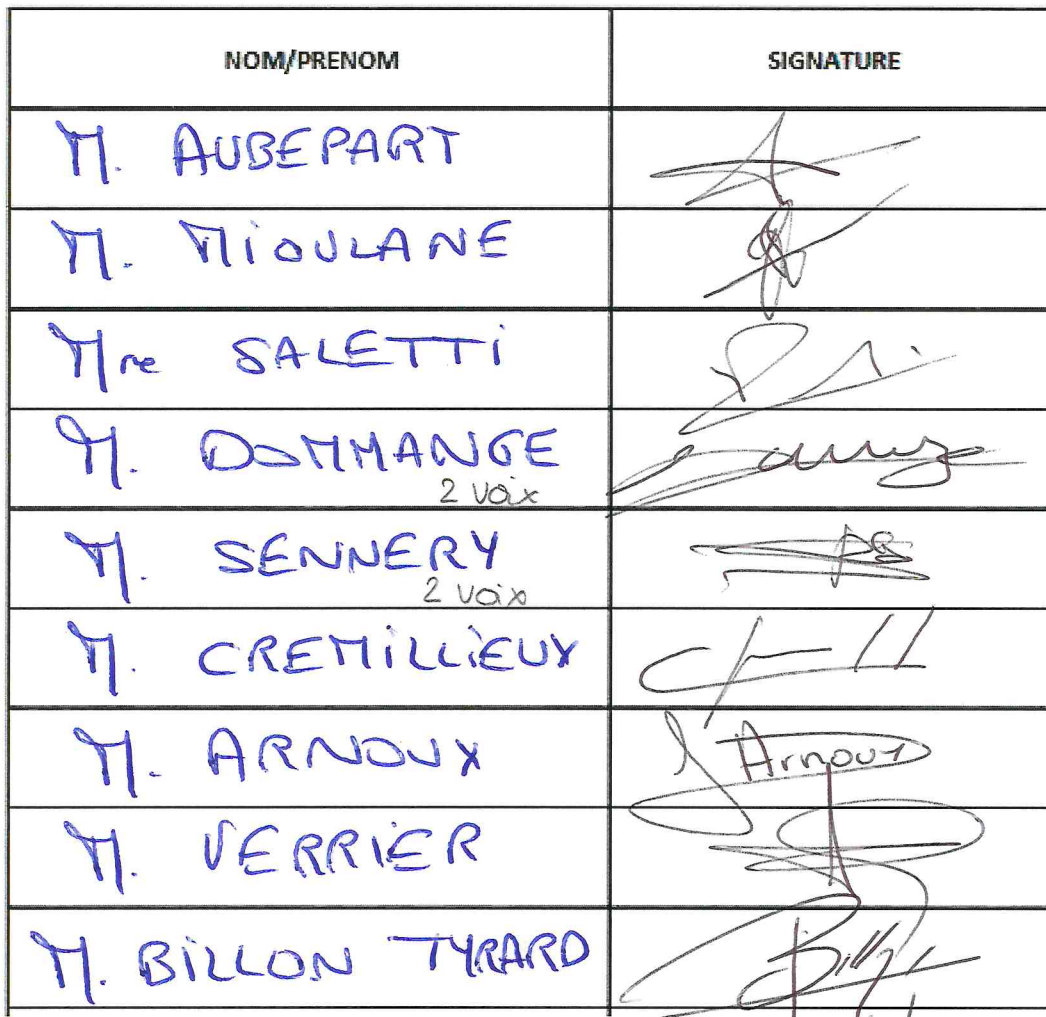 NOM/PRENOM SIGNATURE
M. AUBEPART
M. MIOULANE
Mme SALETTI
M. DOMMANGE
2 voix
M. SENNERY
2 voix
M. CREMILLIEUX
M. ARNOUX Arnoux
M. VERRIER
M. BILLON TYRARD